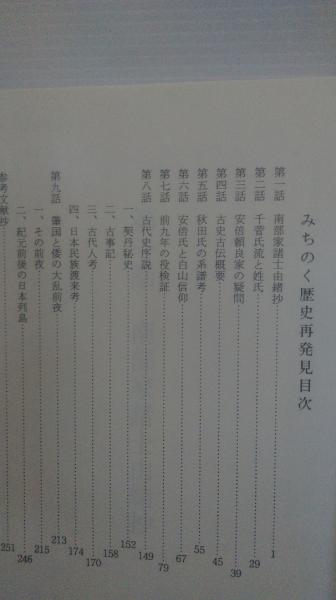 みちのく歴史再発見目次
第一話 南部家諸士由緒抄 1
第二話 千菅氏流と姓氏 29
第三話 安倍頼良家の疑問 39
第四話 古史古伝概要 45
第五話 秋田氏の系譜考 55
第六話 安倍氏と白山信仰 67
第七話 前九年の役検証 79
第八話 古代史序説 149
一、契丹秘史 152
二、古事記 158
三、古代人考 170
四、日本民族渡来考 174
第九話 肇国と倭の大乱前夜 213
一、その前夜 215
二、紀元前後の日本列島 246
参考文献抄 251